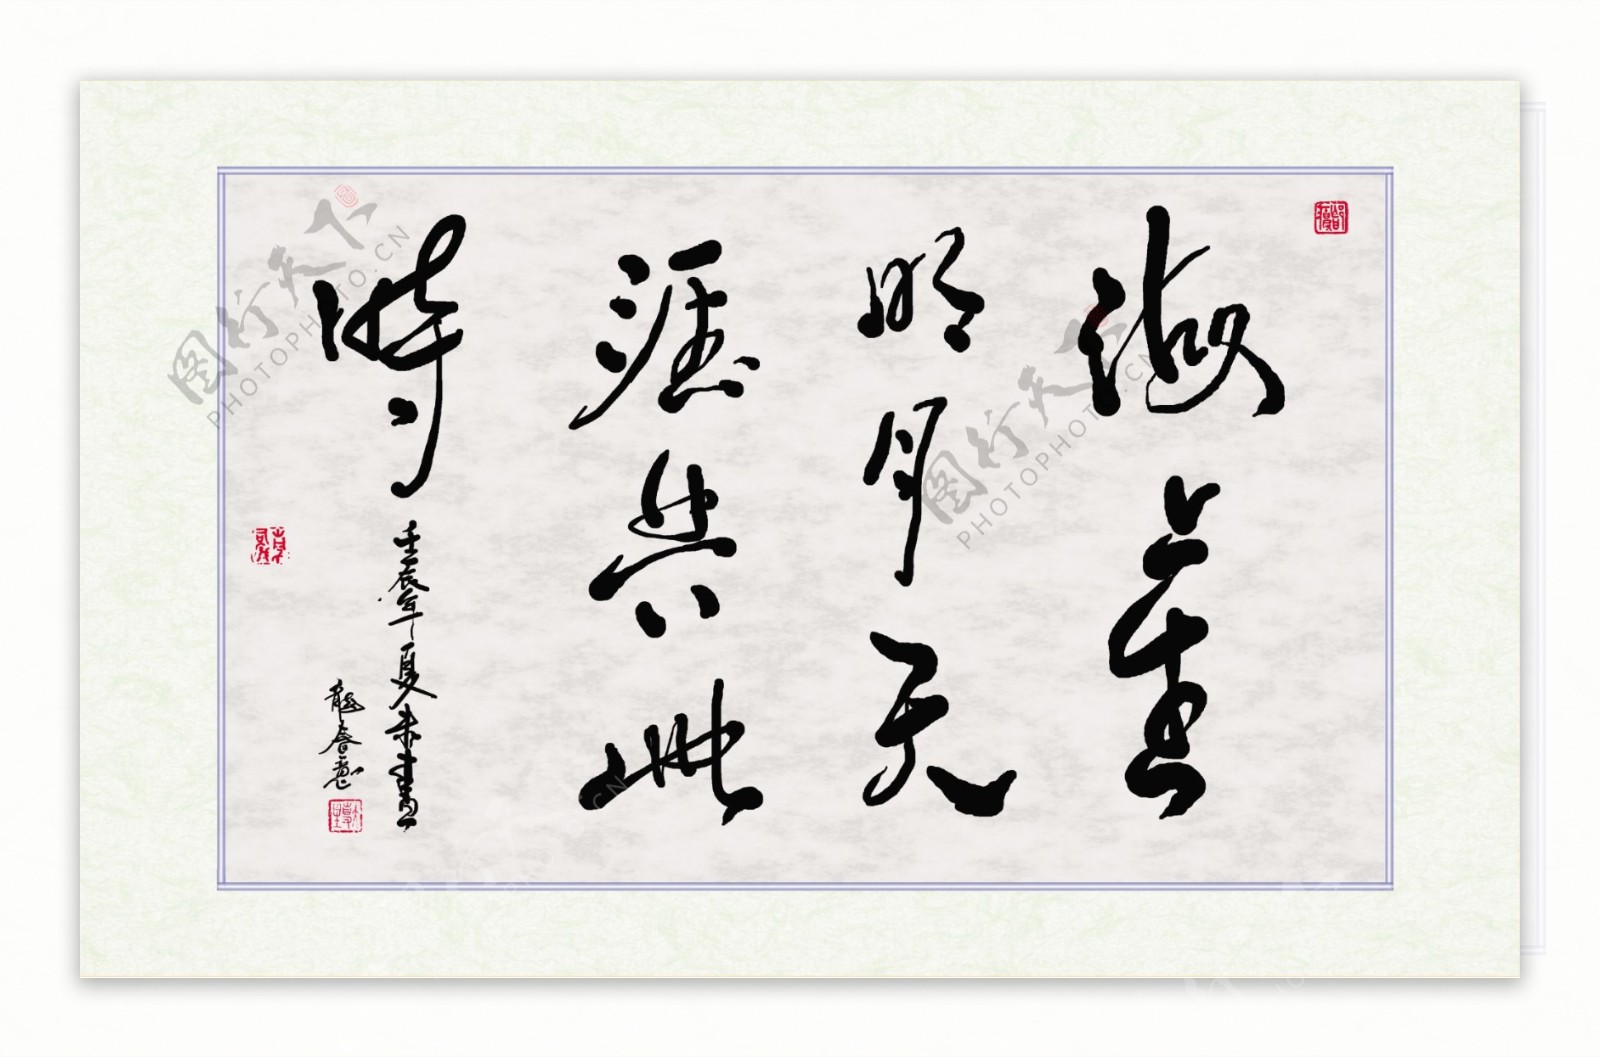 海上生
明月天
涯共此
時
壬辰年夏末書
图行天下
PHOTOPHOTO.CN
图行天下
PHOTOPHOTO.CN